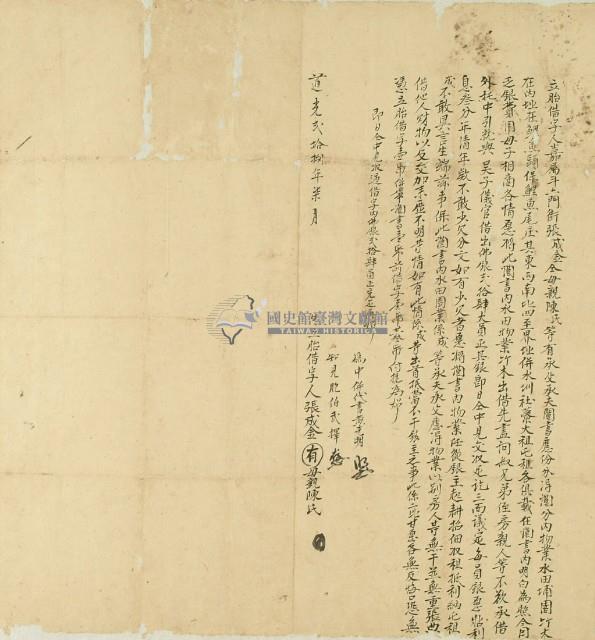 立胎借字人嘉屬斗六門街張成金仝母親陳氏等有承父承夫鬮書應份分得鬮分內物業水田埔園竹木
在內址在鯉魚頭保鯉魚尾庄其東西南北四至界址併水圳社藜大租屯租各俱載在鬮書內明白為照今因
乏銀費用母子相商各情愿將此鬮書內水田物業竹木出借先盡問叔兄弟侄房親人等不欲承借
外托中引就與吳子儀官借出佛銀弍拾肆大員正其銀即日仝中見交收足訖三面議定每員銀愿貼利
息叁分年清年款不敢少欠分文如有少欠者愿將鬮書內物業任從銀主起耕招佃收租抵利納屯租
成不敢異言生端滋事保此鬮書內水田園業係成等承夫父應得物業以別房人等無干並無重張典
借他人財物以及交加來歷不明等情如有此情係成等出首抵當不干銀主之事此係二比甘愿各無反悔恐無
憑立胎借字壹帋併帶鬮書壹帋前借字壹帋共叁帋付執為炤
即日仝中見收過借字內佛銀弍拾肆員正完足炤
為中併代書 明
知見胞伯武擇
道光弍拾捌年柒月 日立胎借字人張成金 有 母親陳氏
國史館臺灣文獻館
TAIWAN HISTORICA